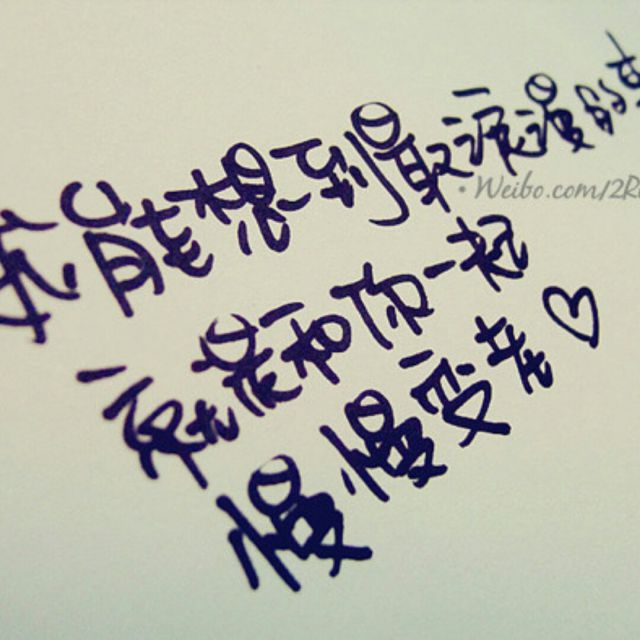 我能想到最浪漫的事
就是和你一起
慢慢变老♡
Weibo.com/2R